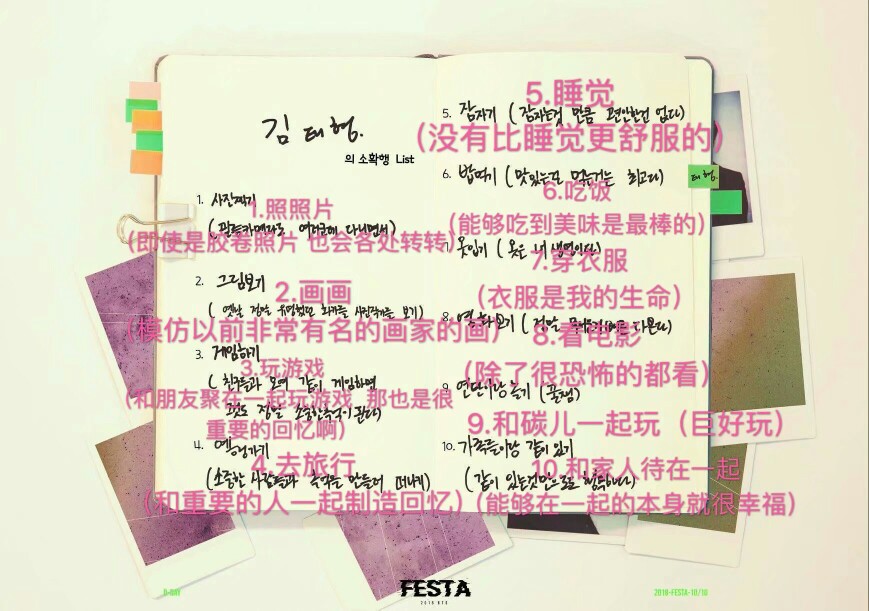 김태형.
의 소확행 List
1. 사진찍기
1.照照片
(即使是胶卷照片 也会各处转转)
2. 그림보기
2.画画
(模仿以前非常有名的画家的画)
3. 게임하기
3.玩游戏
( 친구들과 모여 같이 게임하면
(和朋友聚在一起玩游戏 那也是很
그것도 정말 소중한 추억이 된다)
重要的回忆啊)
4. 여행가기
4.去旅行
(소중한 사람들과 추억을 만들러 떠나기)
(和重要的人一起制造回忆)
5. 잠자기 ( 잠자는것 만큼 편안한건 없다)
5.睡觉
(没有比睡觉更舒服的)
6. 밥먹기 ( 맛있는걸 먹는거는 최고다)
6.吃饭
(能够吃到美味是最棒的)
옷입기 ( 옷은 내 생명이다)
7.穿衣服
(衣服是我的生命)
8. 영화보기 ( 정말
8.看电影
(除了很恐怖的都看)
9. 연탄이랑 놀기 ( 꿀잼)
9.和碳儿一起玩（巨好玩）
10. 가족들이랑 같이 있기
10.和家人待在一起
( 같이 있는것만으로도 행복하다)
(能够在一起的本身就很幸福)
태형.
D-DAY
FESTA
2018 BTS
2018-FESTA-10/10